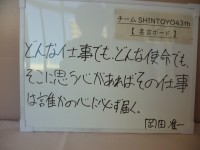 チームSHINTOYO43th
【名言ボード】
どんな仕事でも、どんな使命でも、
そこに思う心があればその仕事
は誰かの心に必ず届く。
岡田准一